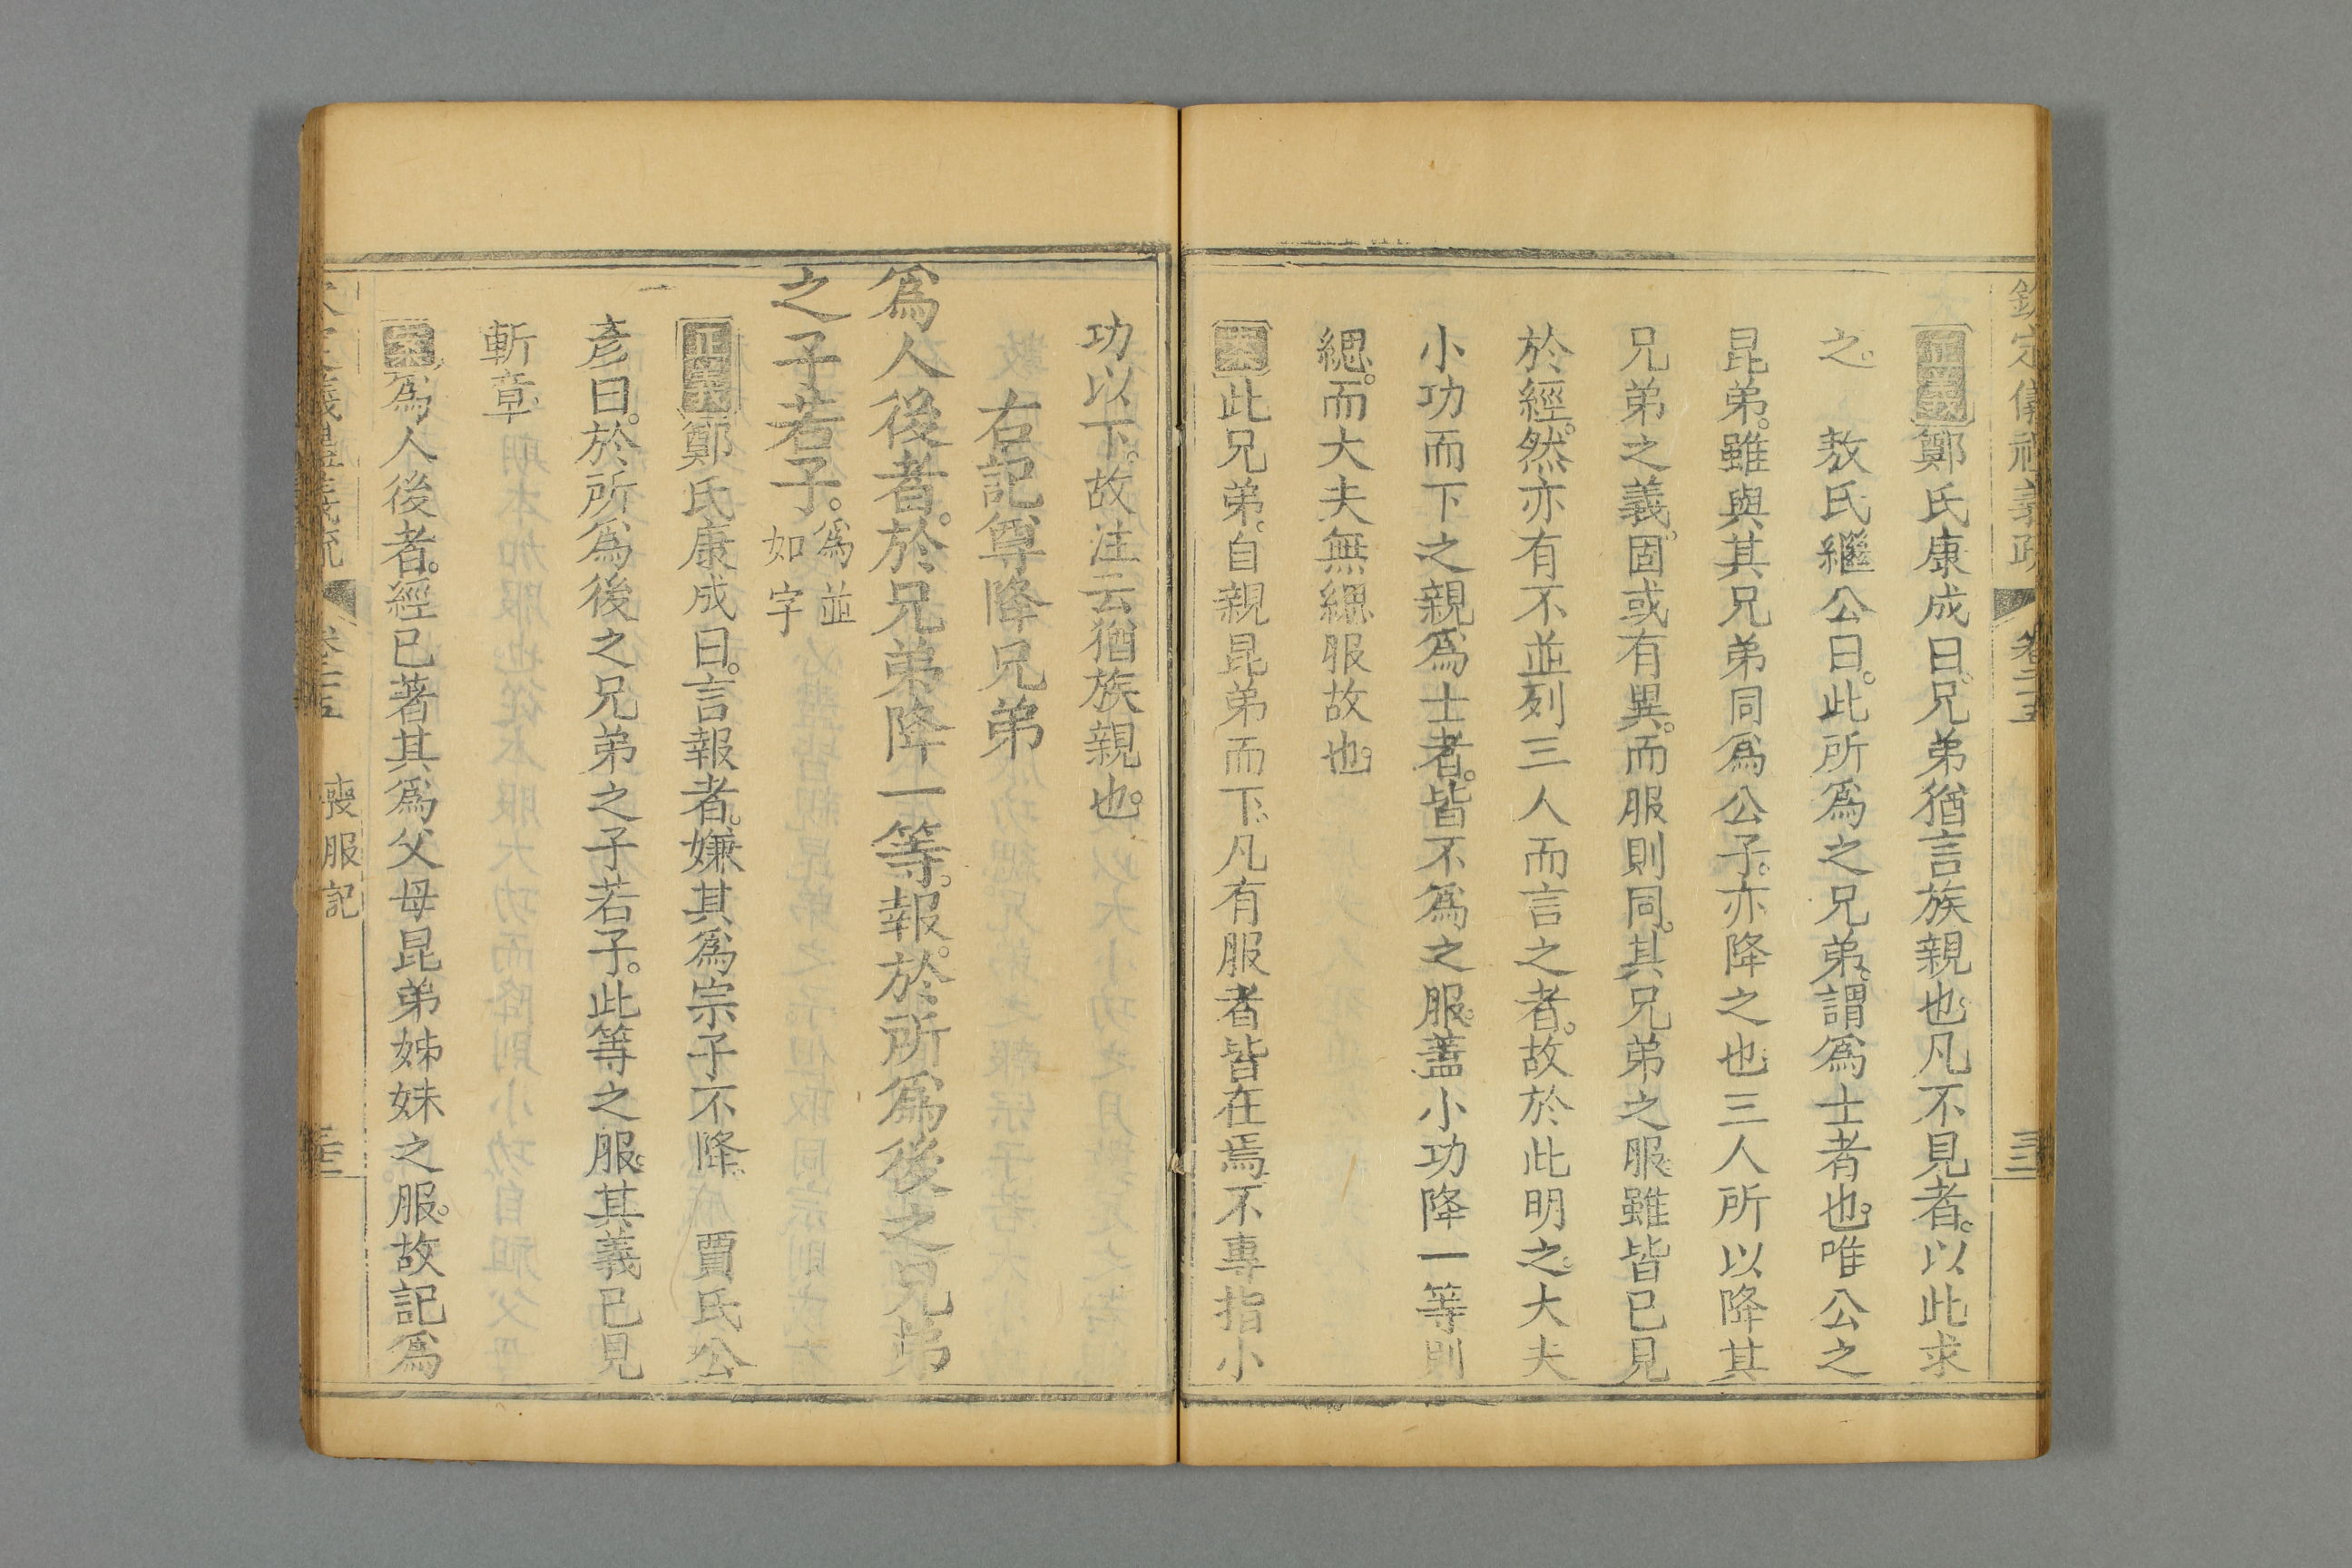 欽定儀禮義疏 卷二十五 三十二
正義鄭氏康成曰。兄弟猶言族親也。凡不見者。以此求
之。 敖氏繼公曰。此所爲之兄弟。謂爲士者也。唯公之
昆弟。雖與其兄弟同爲公子。亦降之也。三人所以降其
兄弟之義。固或有異。而服則同。其兄弟之服。雖皆已見
於經。然亦有不並列三人而言之者。故於此明之。大夫
小功而下之親爲士者。皆不爲之服。蓋小功降一等則
緦。而大夫無緦服故也。
案此兄弟。自親昆弟而下。凡有服者皆在焉。不專指小
功以下。故注云猶族親也。
右記尊降兄弟
爲人後者。於兄弟降一等。報。於所爲後之兄弟
之子若子。爲並如字
正義鄭氏康成曰。言報者。嫌其爲宗子不降。 賈氏公
彥曰。於所爲後之兄弟之子若子。此等之服。其義已見
斬章
案爲人後者。經已著其爲父母昆弟姊妹之服。故記爲
義禮義疏 卷二十五 喪服記